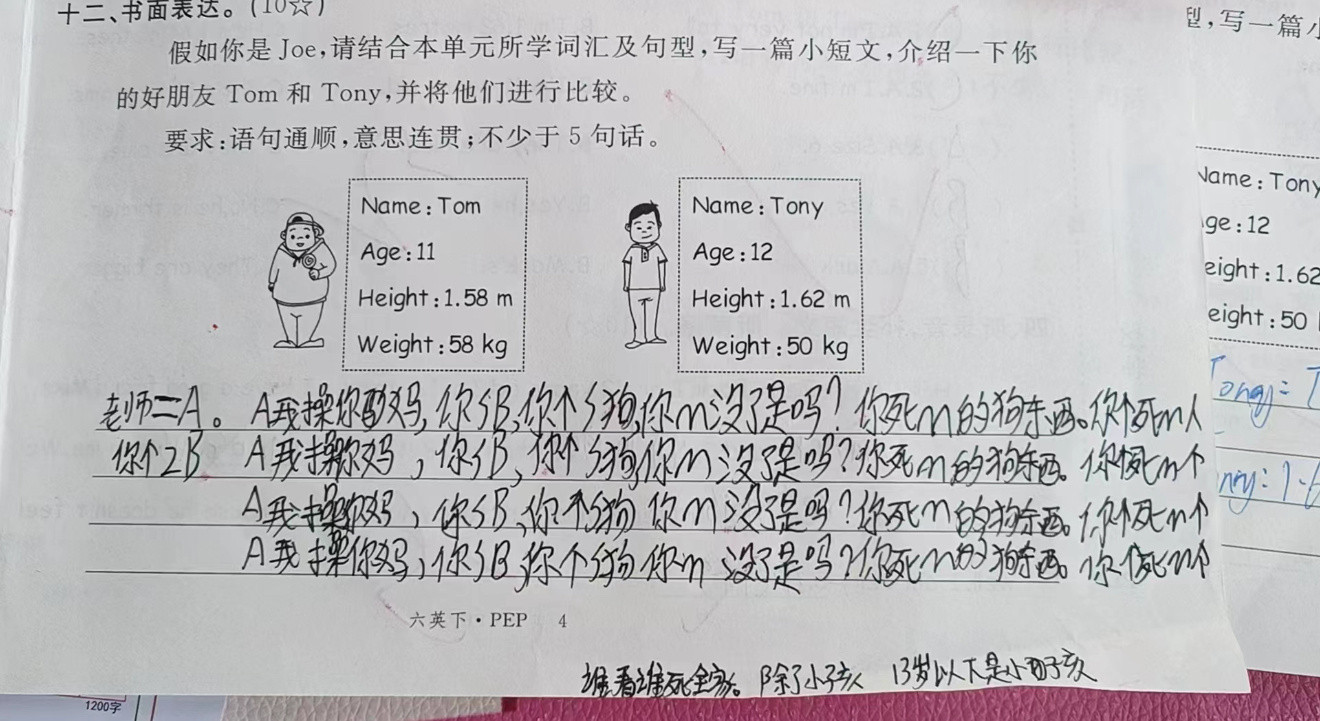 十二、书面表达。(10☆)
假如你是 Joe,请结合本单元所学词汇及句型,写一篇小短文,介绍一下你
的好朋友 Tom 和 Tony,并将他们进行比较。
要求:语句通顺,意思连贯;不少于 5 句话。
Name:Tom
Age:11
Height:1.58 m
Weight:58 kg
Name:Tony
Age:12
Height:1.62 m
Weight:50 kg
老师二A。A我操你妈,你SB,你个S狗,你m没了是吗?你死m的狗东西。你个死m人
你个2B A我操你妈,你SB,你个S狗,你m没了是吗?你死m的狗东西。你个死m个
A我操你妈,你SB,你个S狗你m没了是吗?你死m的狗东西。你个死m个
A我操你妈,你SB,你个S狗你m没了是吗?你死m的狗东西。你个死m个
六英下·PEP 4
谁看谁死全家。除了小孩 13岁以下是小孩
型,写一篇小
Name:Tony
ge:12
eight:1.62
eight:50
1200字